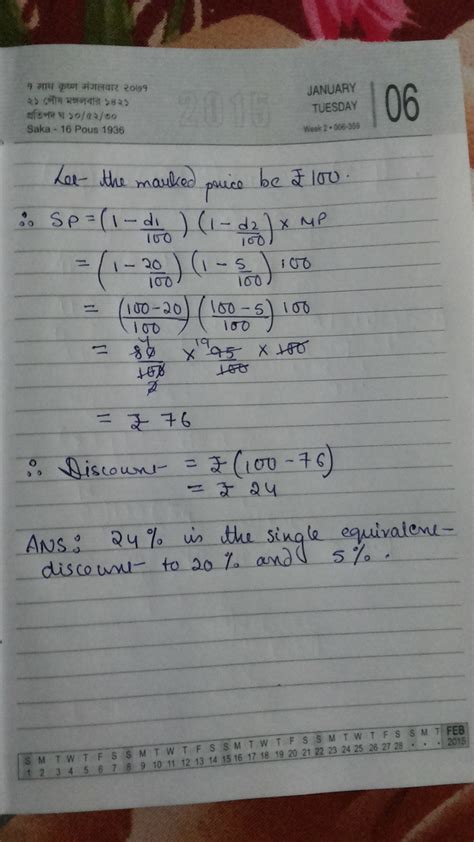 १ माघ कृष्ण मंगलवार २०७१
২১ পৌষ মঙ্গলবার ১৪২১
Saka - 16 Pous 1936
2015
JANUARY
TUESDAY
Week 2 • 006-359
06
Let the marked price be ₹100.
∴ SP = (1 - d1/100) (1 - d2/100) × MP
= (1 - 20/100) (1 - 5/100) 100
= (100-20/100) (100-5/100) 100
= 80/100 × 19 95/100 × 100
= ₹ 76
∴ Discount = ₹ (100 - 76)
= ₹ 24
ANS: 24% is the single equivalent
discount to 20% and 5%.
S M T W T F S S M T W T F S S M T W T F S S M T W T F S S M T FEB
1 2 3 4 5 6 7 8 9 10 11 12 13 14 15 16 17 18 19 20 21 22 23 24 25 26 27 28 • • • 2015